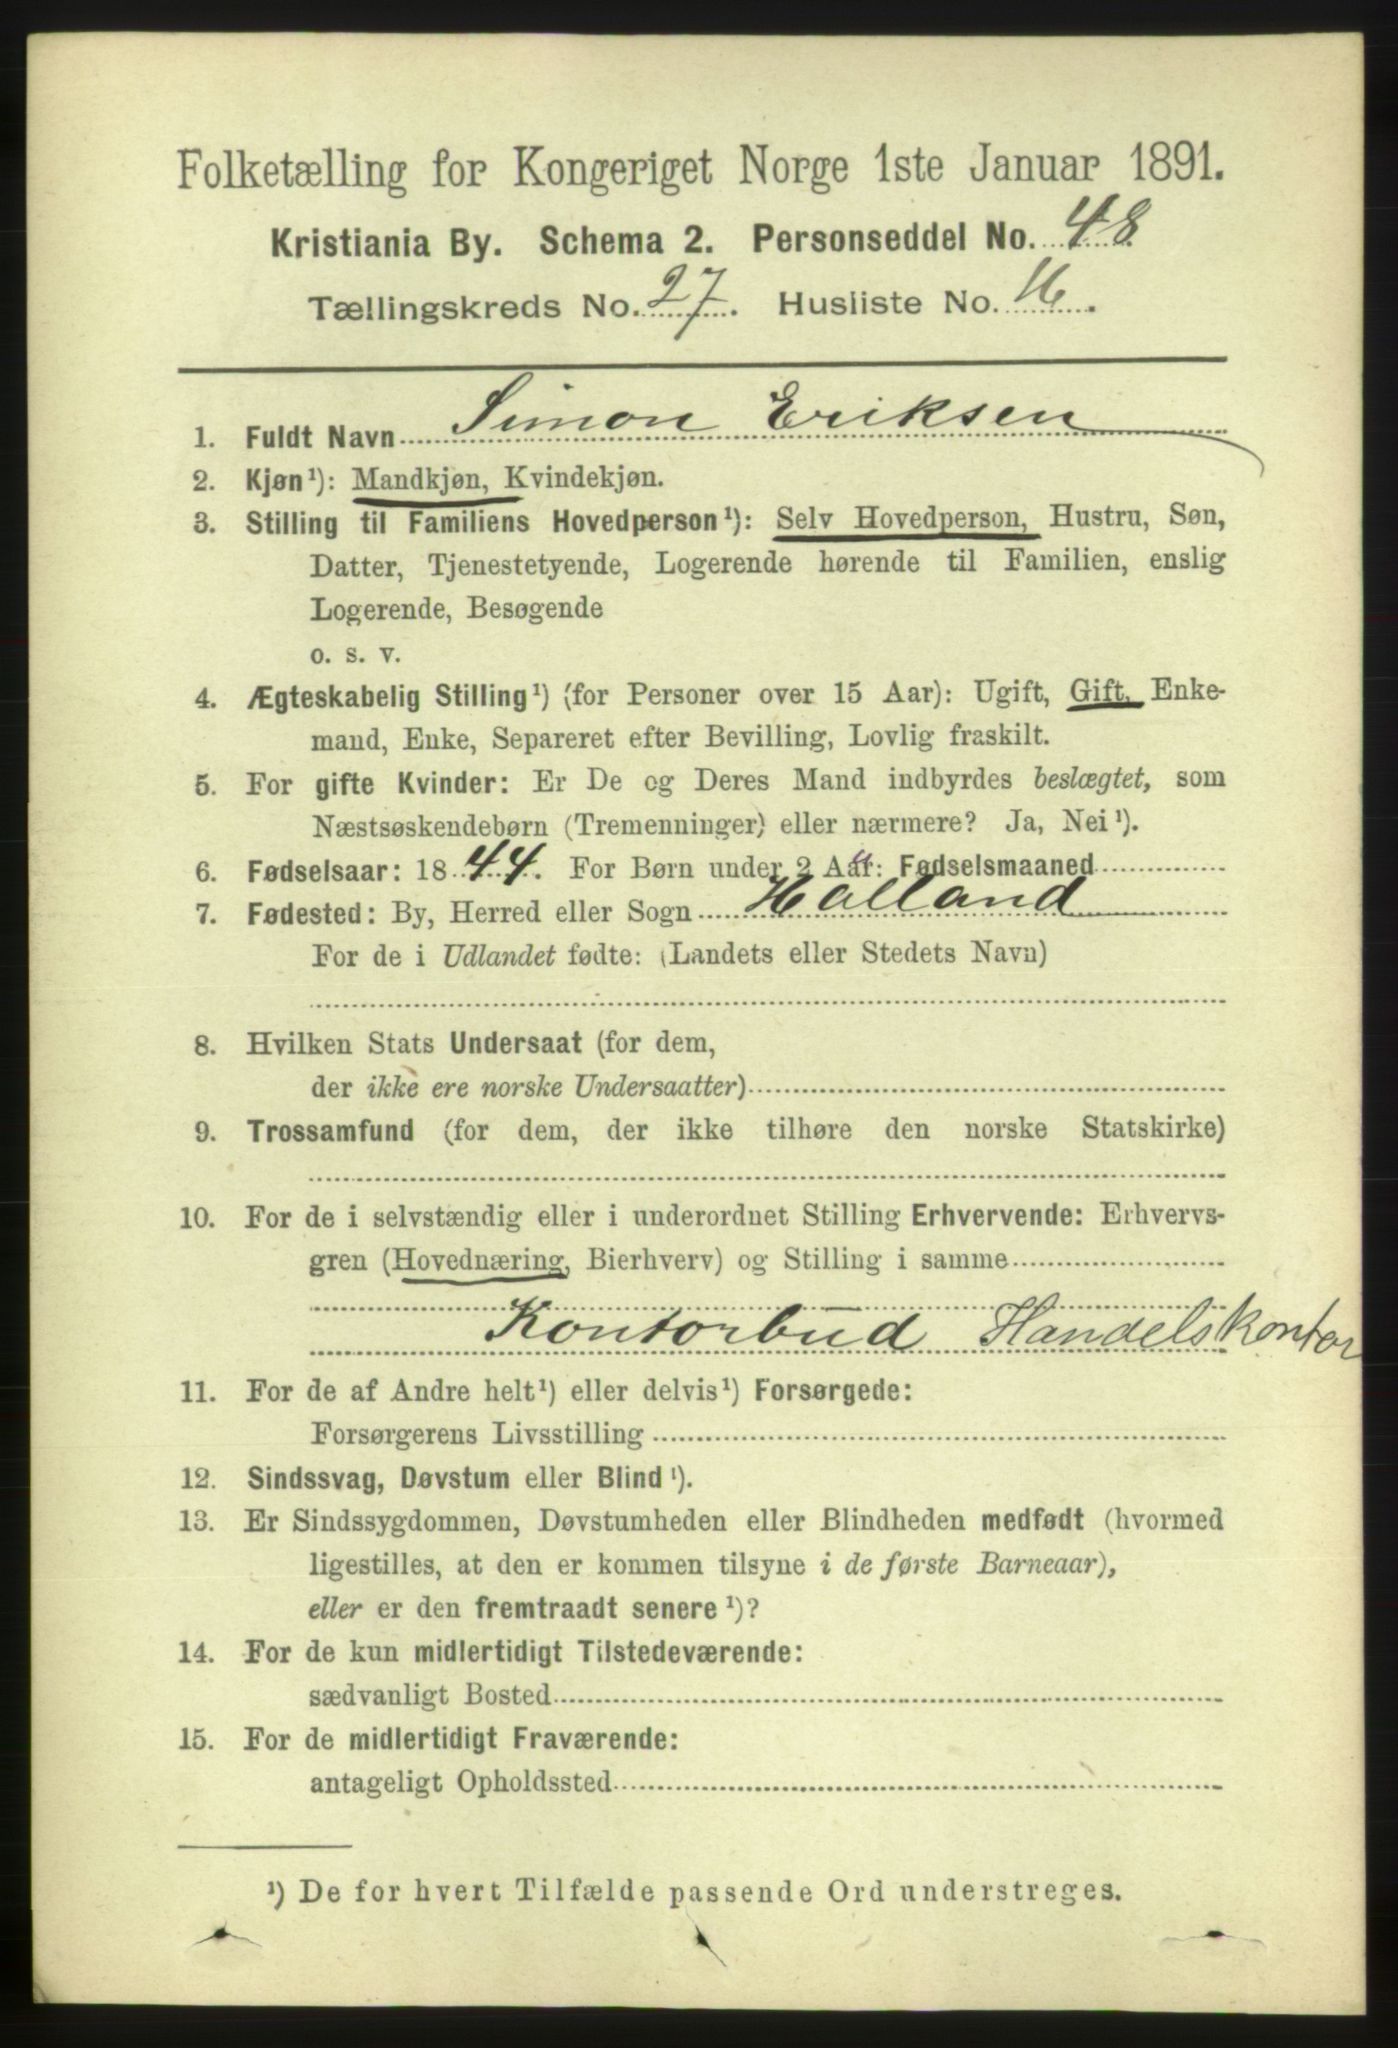 Folketælling for Kongeriget Norge 1ste Januar 1891.
Kristiania By. Schema 2. Personseddel No. 48
Tællingskreds No. 27. Husliste No. 16.
1. Fuldt Navn Simon Eriksen
2. Kjøn¹): Mandkjøn, Kvindekjøn.
3. Stilling til Familiens Hovedperson¹): Selv Hovedperson, Hustru, Søn,
Datter, Tjenestetyende, Logerende hørende til Familien, enslig
Logerende, Besøgende
o. s. v.
4. Ægteskabelig Stilling¹) (for Personer over 15 Aar): Ugift, Gift, Enke-
mand, Enke, Separeret efter Bevilling, Lovlig fraskilt.
5. For gifte Kvinder: Er De og Deres Mand indbyrdes beslægtet, som
Næstsøskendebørn (Tremenninger) eller nærmere? Ja, Nei¹).
6. Fødselsaar: 1844. For Børn under 2 Aar: Fødselsmaaned
7. Fødested: By, Herred eller Sogn Holland
For de i Udlandet fødte: (Landets eller Stedets Navn)
8. Hvilken Stats Undersaat (for dem,
der ikke ere norske Undersaatter)
9. Trossamfund (for dem, der ikke tilhøre den norske Statskirke)
10. For de i selvstændig eller i underordnet Stilling Erhvervende: Erhvervs-
gren (Hovednæring, Bierhverv) og Stilling i samme
Kontorbud Handelskontor
11. For de af Andre helt¹) eller delvis¹) Forsørgede:
Forsørgerens Livsstilling
12. Sindssvag, Døvstum eller Blind¹).
13. Er Sindssygdommen, Døvstumheden eller Blindheden medfødt (hvormed
ligestilles, at den er kommen tilsyne i de første Barneaar),
eller er den fremtraadt senere¹)?
14. For de kun midlertidigt Tilstedeværende:
sædvanligt Bosted
15. For de midlertidigt Fraværende:
antageligt Opholdssted
¹) De for hvert Tilfælde passende Ord understreges.